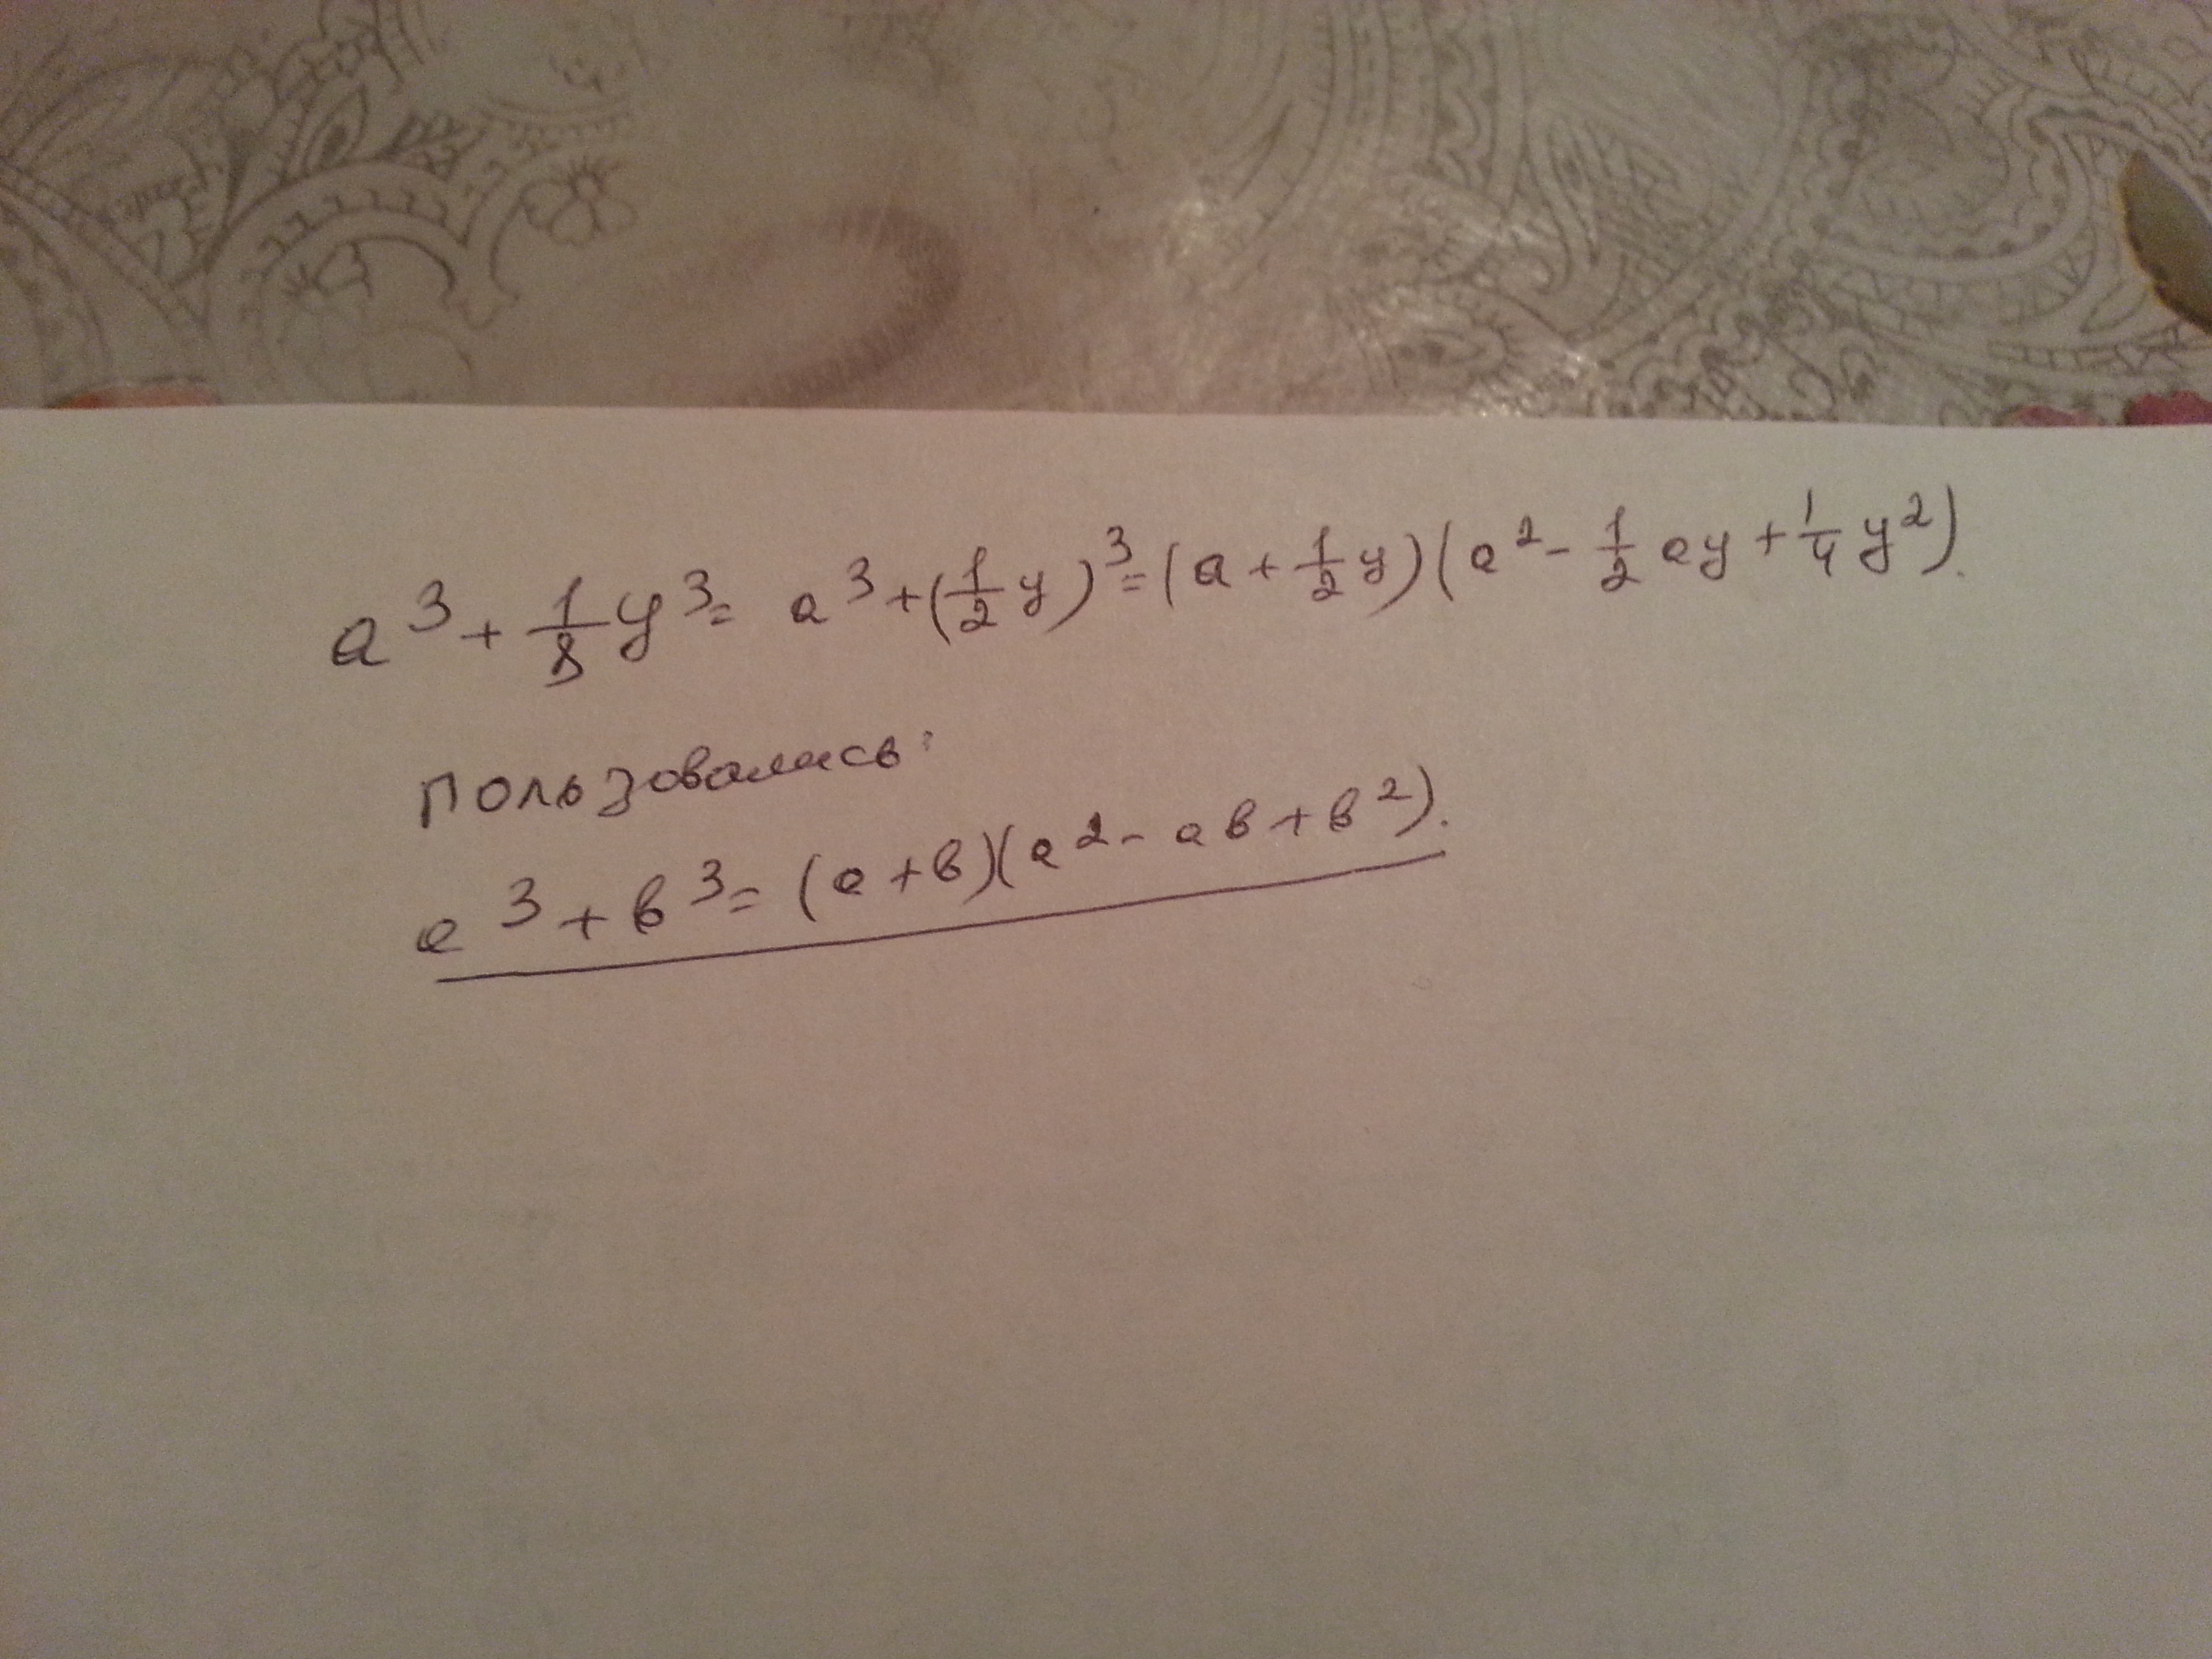 a³ + 1/8 y³ = a³ + (1/2 y)³ = (a + 1/2 y)(a² - 1/2 ay + 1/4 y²).
Пользовались:
a³ + b³ = (a + b)(a² - ab + b²).